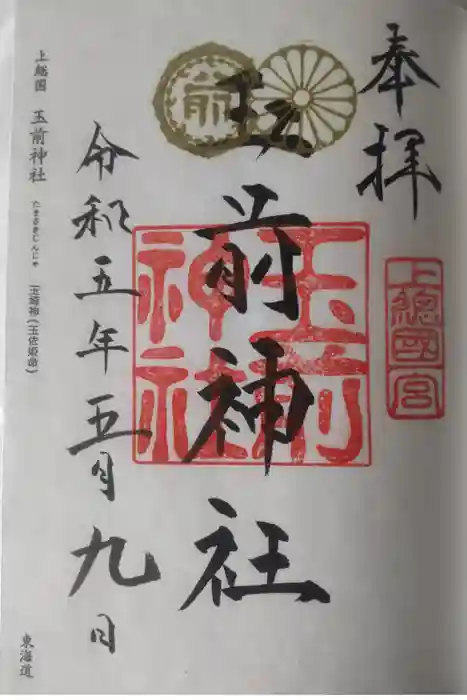 奉拝
上總國一宮
前
玉前神社
玉前神社
令和五年五月九日
上総国 玉前神社 たまさきじんじゃ
東海道